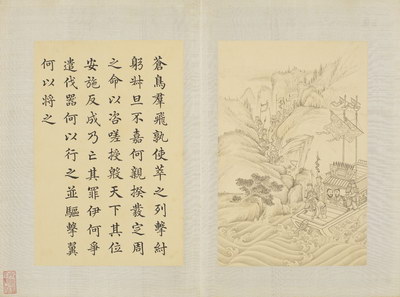 蒼鳥羣飛孰使萃之列擊紂
躬叔旦不嘉何親揆發定周
之命以咨嗟授殷天下其位
安施反成乃亡其罪伊何爭
遣伐器何以行之並驅擊翼
何以將之